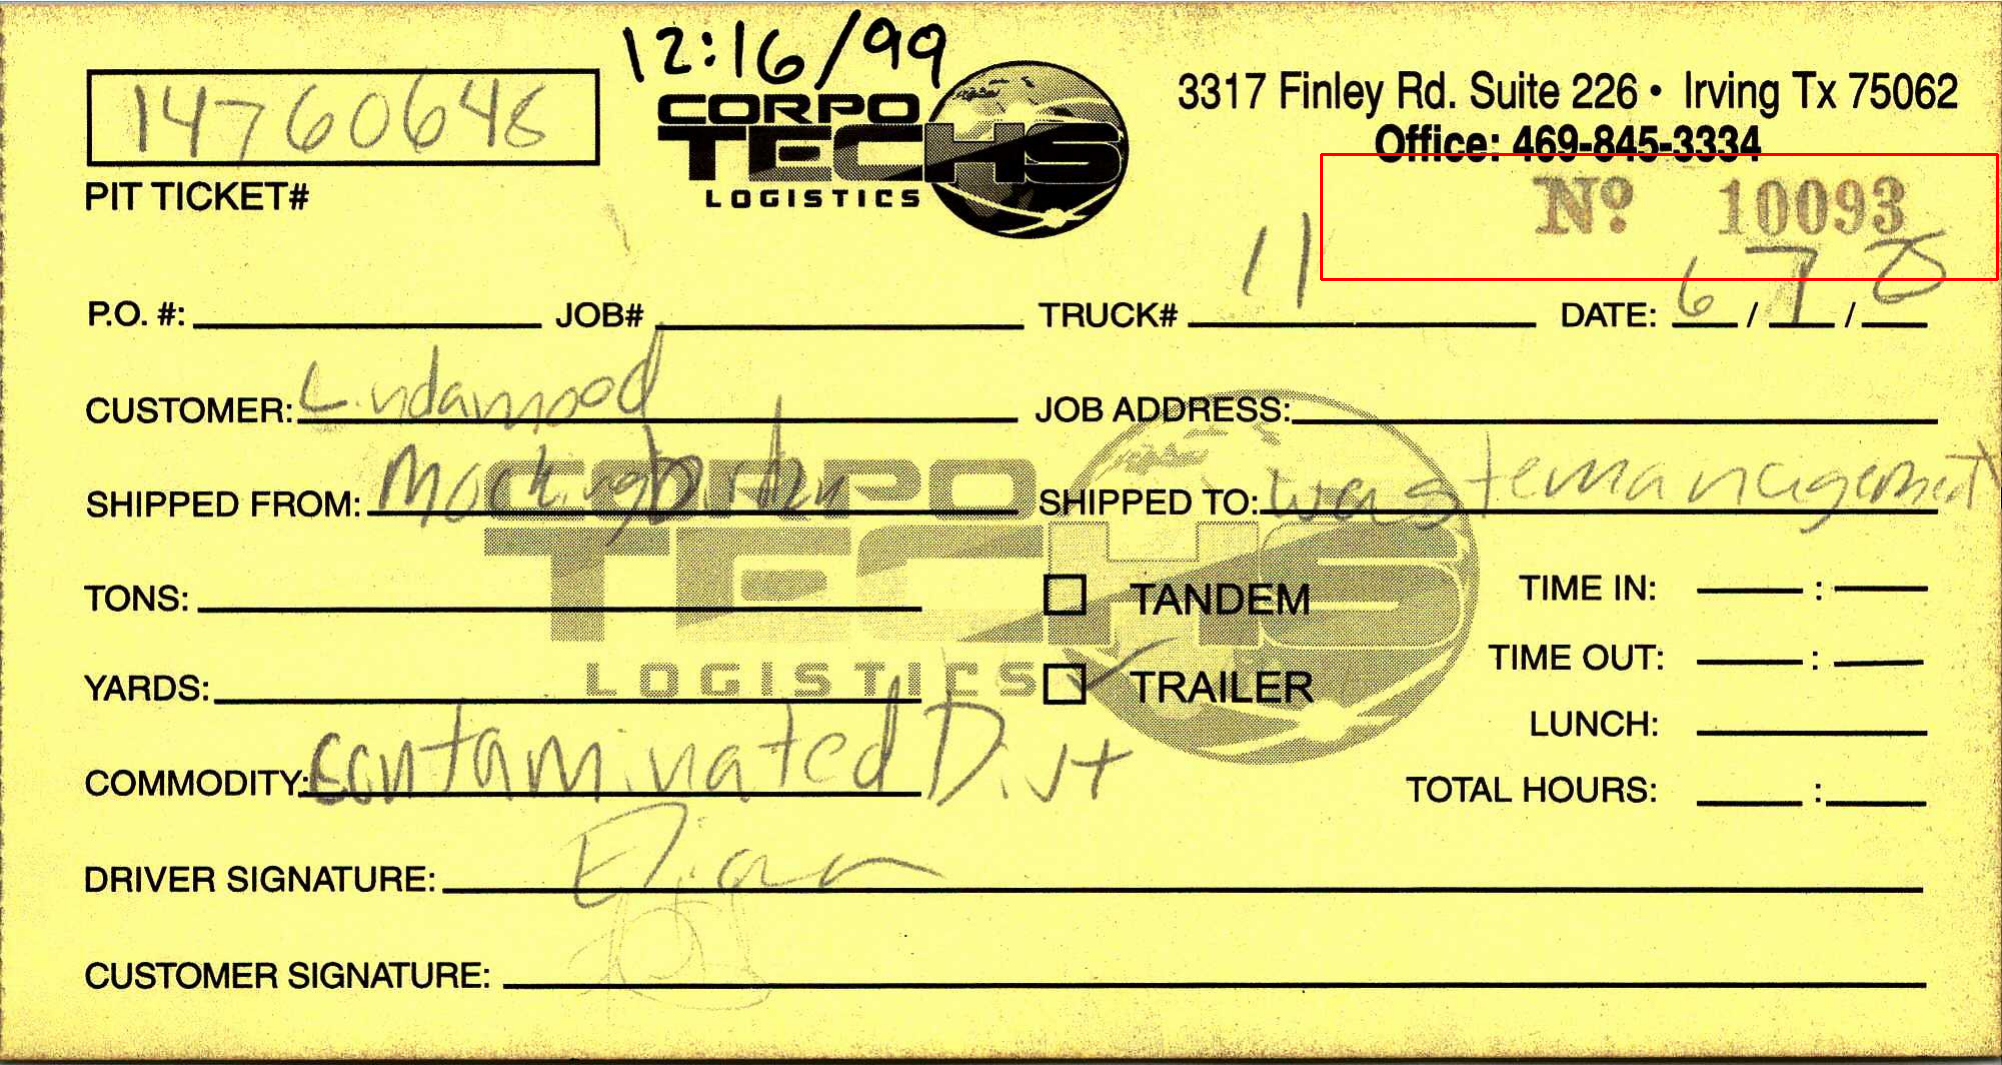 12:16/99
14760648
PIT TICKET#
CORPO
TECHS
LOGISTICS
3317 Finley Rd. Suite 226 • Irving Tx 75062
Office: 469-845-3334
Nº 10093
P.O. #: JOB# TRUCK# 11 DATE: 6 / 7 /
CUSTOMER: Lindamood JOB ADDRESS:
SHIPPED FROM: SHIPPED TO: wastemanagement
CORPO
TECHS
LOGISTICS
TONS: TANDEM TIME IN: :
YARDS: TRAILER TIME OUT: :
LUNCH:
COMMODITY: contaminated Dirt TOTAL HOURS: :
DRIVER SIGNATURE:
CUSTOMER SIGNATURE: